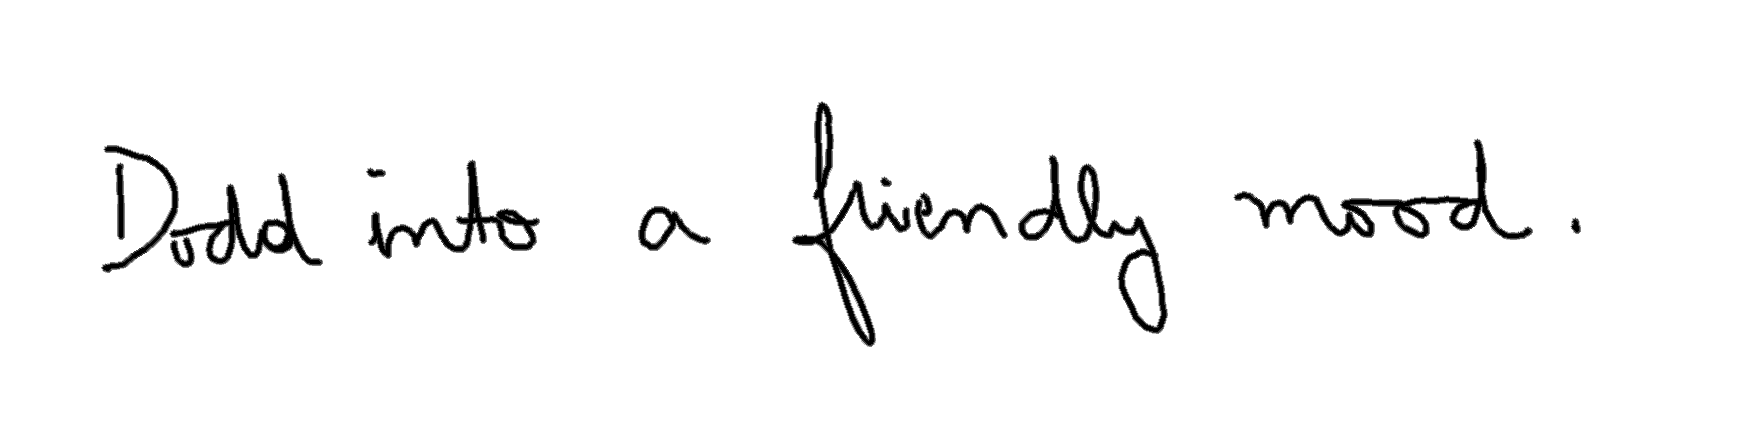 Dodd into a friendly mood.